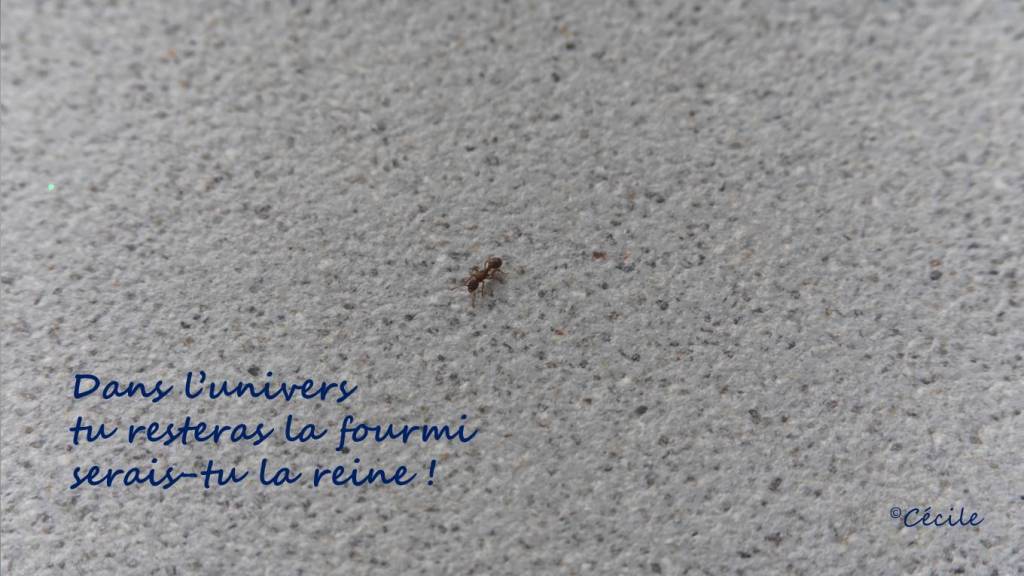 Dans l'univers
tu resteras la fourmi
serais-tu la reine !
©Cécile